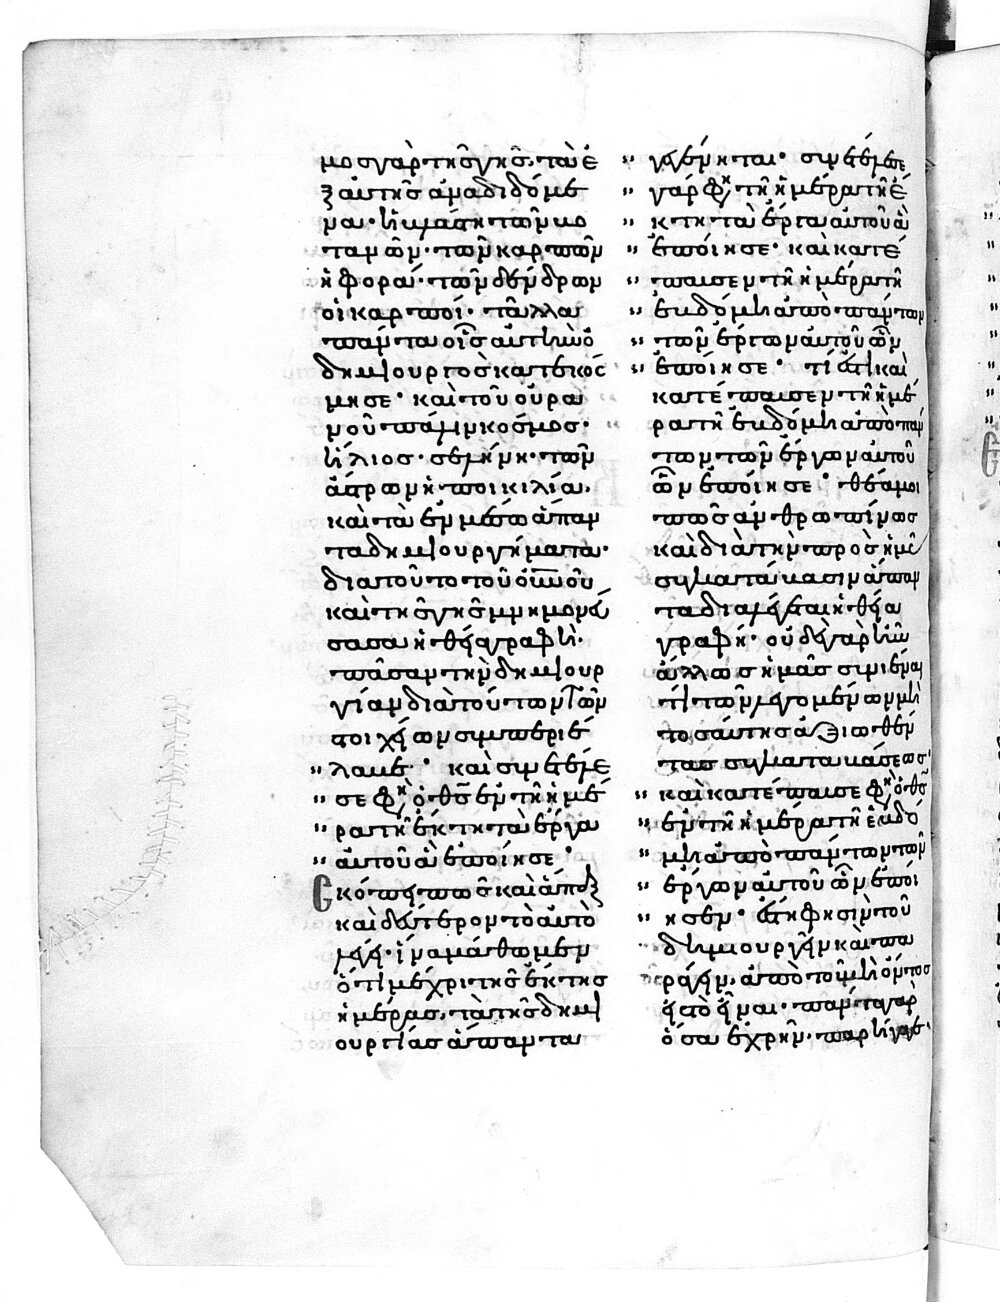 μος γὰρ τῆς γῆς, τὰ ἐ
ξ αὐτῆς ἀναδιδόμε
να· ἡ πηγὴ τῶν πο
ταμῶν· τῶν καρπῶν
ἡ φορά· τῶν δένδρων
οἱ καρποί· τἄλλα
πάντα οἷς αὐτὴν ὁ
δημιουργὸς κατεκόσ
μησε· καὶ τοῦ οὐρα
νοῦ πάλιν κόσμος·
ἥλιος· σελήνη· τῶν
ἄστρων ἡ ποικιλία·
καὶ τὰ ἐν μέσω ἅπαν
τα δημιουργήματα·
διὰ τοῦτο τοῦ οὐνοῦ
καὶ τῆς γῆς μνημονεύ
σασα ἡ θεία γραφὴ·
πᾶσαν τὴν δημιουρ
γίαν διὰ τούτων τῶν
στοιχείων συμπεριέ
" λαβε· καὶ συνετέλε
" σε φησὶν ὁ θς ἐν τῆ ἡμέ
" ρα τῆ ἕκτη τὰ ἔργα
" αὐτοῦ ἃ ἐποίησε·
Σκόπει πῶς καὶ ἅπαξ
καὶ δεύτερον τὸ αὐτὸ
λέγει· ἵνα μάθωμεν
ὅτι μέχρι τῆς ἕκτης
ἡμέρας, τὰ τῆς δημι
ουργίας ἅπαντα
" γεγένηται· συνετέλεσε
" γὰρ φησὶ τῆ ἡμέρα τῆ ἕ
" κτη τὰ ἔργα αὐτοῦ ἃ
" ἐποίησε· καὶ κατέ
" παυσεν τῆ ἡμέρα τῆ
" ἑβδόμη ἀπὸ πάντων
" τῶν ἔργων αὐτοῦ ὧν
" ἐποίησε· τί ἐστι καὶ
κατέπαυσεν τῆ ἡμέ
ρα τῆ ἑβδόμη ἀπὸ πάν
των τῶν ἔργων αὐτοῦ
ὧν ἐποίησε· θέα μοι
πῶς ἀνθρωπίνως
καὶ διὰ τὴν πρὸς ἡμᾶς
συγκατάβασιν ἅπαν
τα διαλέγεται ἡ θεία
γραφή· οὐδὲ γὰρ ἦν
ἄλλως ἡμᾶς συνιέναι
τὶ τῶν λεγομένων μὴ
τοσαύτης ἀξιωθέν
τας συγκαταβάσεως·
" καὶ κατέπαυσε φησὶν ὁ θς
" ἐν τῆ ἡμέρα τῆ ἑβδό
" μη ἀπὸ πάντων τῶν
" ἔργων αὐτοῦ ὧν ἐποί
" ησεν· ἔστη φησὶν τοῦ
δημιουργεῖν καὶ πα
ράγειν, ἀπὸ τοῦ μὴ ὄντος
εἰς τὸ εἶναι· πάντα γὰρ
ὅσα ἐχρῆν· παρήγαγε·